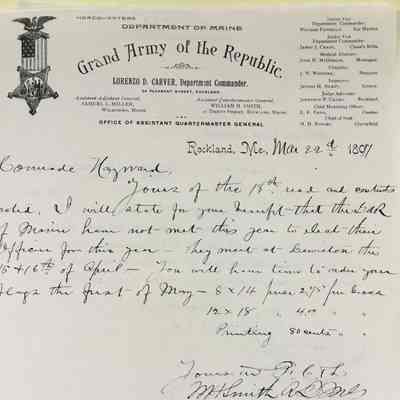 HEADQUARTERS
DEPARTMENT OF MAINE
Grand Army of the Republic.
LORENZO D. CARVER, Department Commander.
Assistant Adjutant General,
SAMUEL L. MILLER,
WALDOBORO, MAINE
Assistant Quartermaster General,
WILLIAM H. SMITH,
ROCKLAND, MAINE
OFFICE OF ASSISTANT QUARTERMASTER GENERAL
Senior Vice
Department Commander,
Junior Vice
Department Commander,
Medical Director,
Chaplain,
Inspector,
Judge Advocate,
Chief Mustering Officer,
Chief of Staff
Rockland, Me., Mar 22d 1897
Comrade Hayward,
Yours of the 18th read and contents
noted. I will state for your benefit that the GAR
of Maine have not met this year to elect their
Officers for this year – They meet at Lewiston the
15 & 16th of April – You will have time to order your
flags the first of May – 8 x 14 price 2.75 per Gross
12 x 18 " 4.00 " "
Printing 80 cents " "
Yours in F. C. & L.